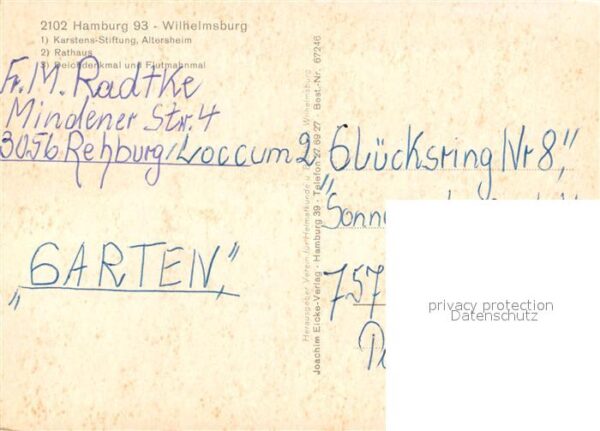 2102 Hamburg 93 - Wilhelmsburg
1) Karstens-Stiftung, Altersheim
2) Rathaus
3) Deichdenkmal und Flutmahnmal
Fr. M. Radtke
Mindener Str. 4
3056 Rehburg/Loccum 2
"GARTEN,"
Herausgeber Verein für Heimatkunde
Wilhelmsburg
Joachim Eicke-Verlag · Hamburg 39 · Telefon 27 69 27 · Best.-Nr. 67246
Glücksring Nr 8,"
"Sonn
757
privacy protection
Datenschutz